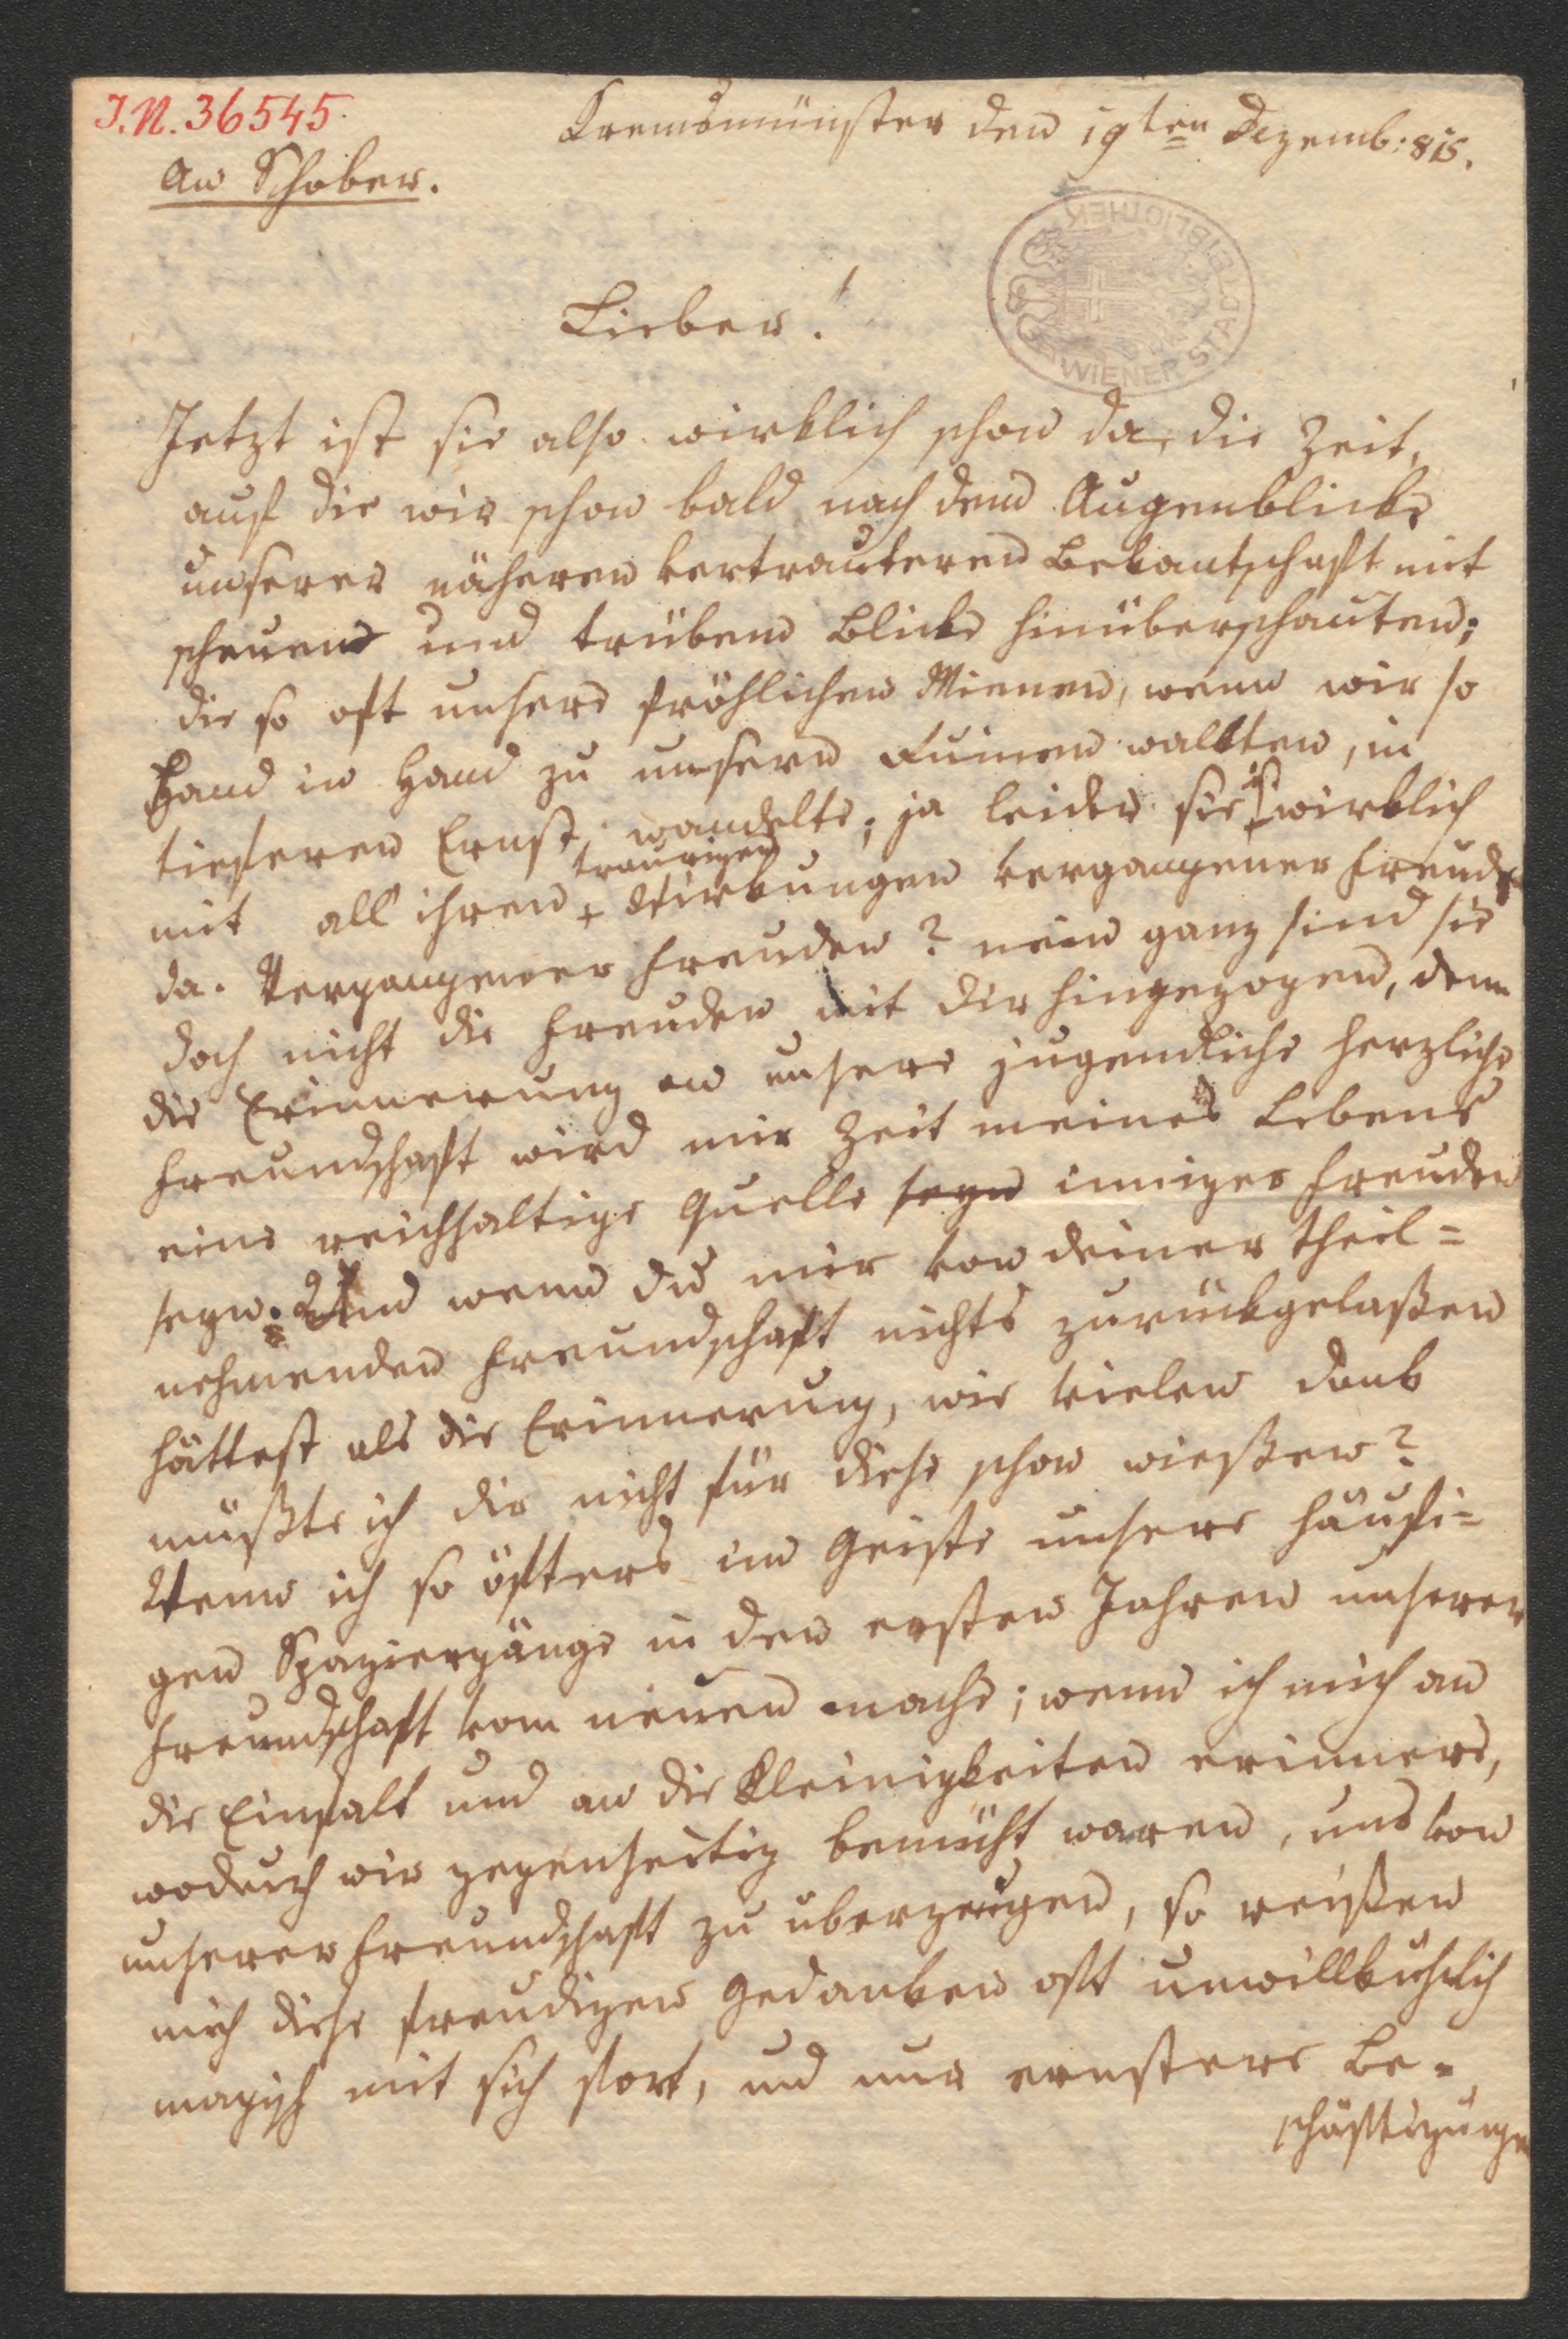 I.N. 36545.
Kremsmünster den 19ten Dezemb: 815.
An Schober.
WIENER STADTBIBLIOTHEK
Lieber!
Jetzt ist sie also wirklich schon da, die Zeit,
auf die wir schon bald nach dem Augenblicke
unserer näheren vertrauteren Bekantschaft mit
scheuem und trübem Blicke hinüberschauten;
die so oft unsere fröhlichen Mienen, wenn wir so
Hand in Hand zu unsern Ruinen wallten, in
tieferen Ernst wandelte; ja leider sie ist wirklich
mit all ihren traurigen Wirkungen vergangener Freuden
da. Vergangener Freuden? nein ganz sind sie
doch nicht die Freuden mit dir hingezogen, denn
die Erinnerung an unsere jugendliche herzliche
Freundschaft wird mir Zeit meines Lebens
eine reichhaltige Quelle seyn inniger Freuden
seyn. Und wenn du mir von deiner theil=
nehmenden Freundschaft nichts zurückgelaßen
hättest als die Erinnerung, wie vielen Dank
müßte ich dir nicht für diese schon wießen?
Wenn ich so öfters im Geiste unsere häufi=
gen Spaziergänge in den ersten Jahren unserer
Freundschaft vom neuen mache; wenn ich mich an
die Einfalt und an die Kleinigkeiten erinnere,
wodurch wir gegenseitig bemüht waren, uns von
unserer Freundschaft zu überzeugen, so reißen
mich diese freudigen Gedanken oft unwillkührlich
magisch mit sich fort, und nur ernstere Be=
schäftigungen